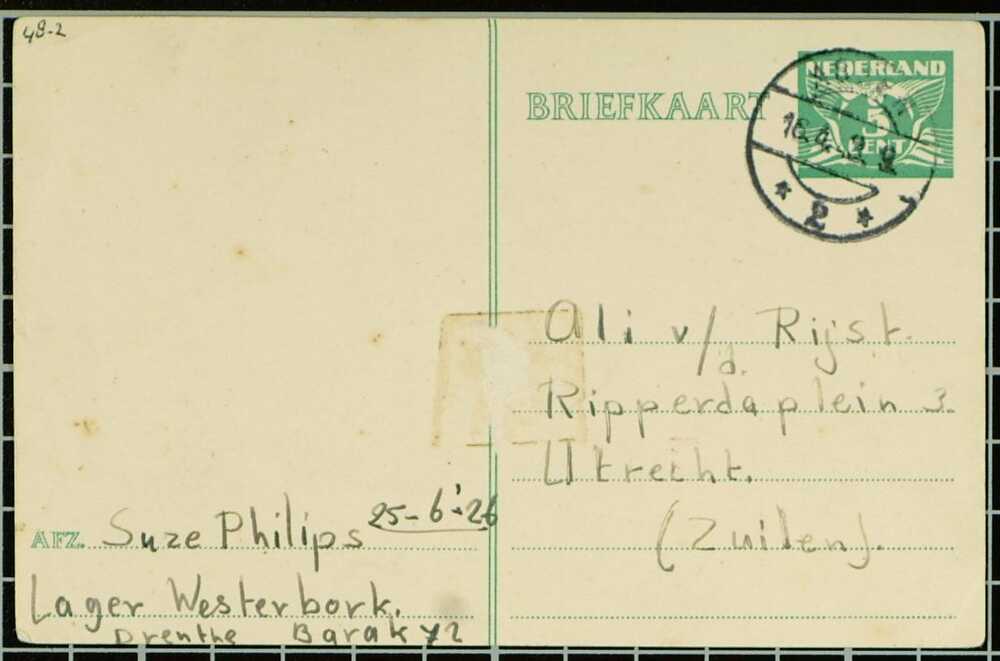 48-2
BRIEFKAART
NEDERLAND
5
CENT
16.4.
2
Ali v/d. Rijst.
Ripperdaplein 3.
Utrecht.
(Zuilen).
AFZ. Suze Philips 25-6-'26
Lager Westerbork.
Drenthe Barak 72